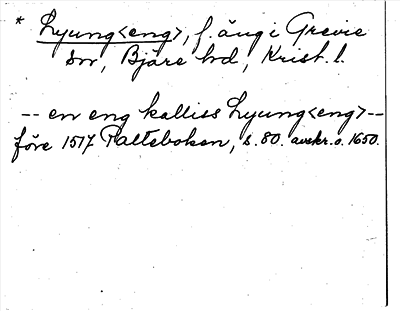 * Lyung<eng>, f. äng i Grevie
sn, Bjäre hd, Krist. l.
-- en eng kalliss Lyung<eng> --
före 1517 Palteboken, s. 80. avskr. o. 1650.